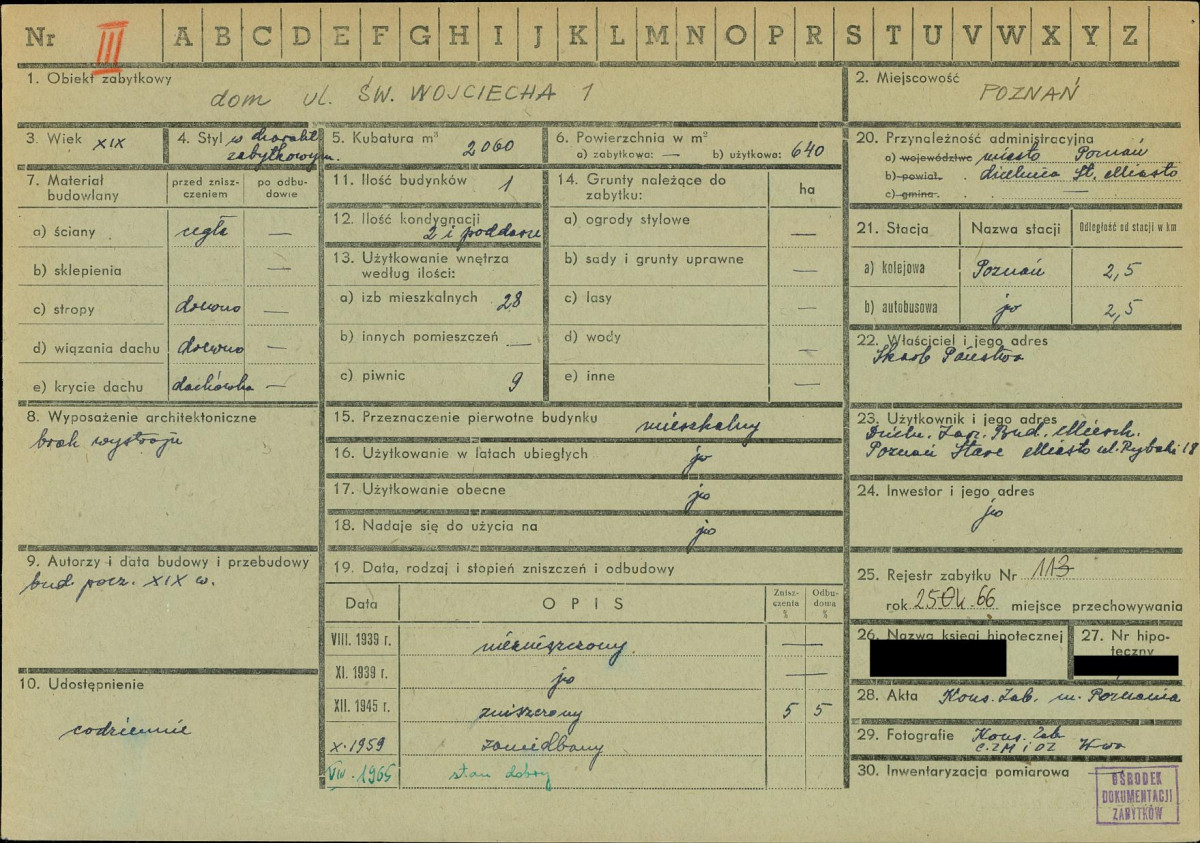 Nr III A B C D E F G H I J K L M N O P R S T U V W X Y Z
1. Obiekt zabytkowy
dom ul. ŚW. WOJCIECHA 1
2. Miejscowość
POZNAŃ
3. Wiek XIX
4. Styl w charakt.
zabytkowym.
5. Kubatura m³ 2060
6. Powierzchnia w m²
a) zabytkowa: — b) użytkowa: 640
7. Materiał budowlany
przed zniszczeniem
po odbudowie
a) ściany cegła —
b) sklepienia —
c) stropy drewno —
d) wiązania dachu drewno —
e) krycie dachu dachówka —
8. Wyposażenie architektoniczne
brak wystroju
9. Autorzy i data budowy i przebudowy
bud. pocz. XIX w.
10. Udostępnienie
codziennie
11. Ilość budynków 1
12. Ilość kondygnacji
2 i poddasze
13. Użytkowanie wnętrza
według ilości:
a) izb mieszkalnych 28
b) innych pomieszczeń —
c) piwnic 9
14. Grunty należące do
zabytku:
ha
a) ogrody stylowe —
b) sady i grunty uprawne —
c) lasy —
d) wody —
e) inne —
15. Przeznaczenie pierwotne budynku mieszkalny
16. Użytkowanie w latach ubiegłych jw
17. Użytkowanie obecne jw
18. Nadaje się do użycia na jw
19. Data, rodzaj i stopień zniszczeń i odbudowy
Data OPIS Zniszczenia % Odbudowa %
VIII. 1939 r. niezniszczony. —
XI. 1939 r. jw —
XII. 1945 r. zniszczony 5 5
X. 1959 zaniedbany
VIII. 1965 stan dobry
20. Przynależność administracyjna
a) województwo miasto Poznań
b) powiat. dzielnica St. Miasto
c) gmina. —
21. Stacja Nazwa stacji Odległość od stacji w km
a) kolejowa Poznań 2,5
b) autobusowa jw 2,5
22. Właściciel i jego adres
Skarb Państwa
23. Użytkownik i jego adres
Dzieln. Zarz. Bud. Mieszk.
Poznań Stare Miasto ul. Rybaki 18
24. Inwestor i jego adres
jw
25. Rejestr zabytku Nr 113
rok 66 miejsce przechowywania
26. Nazwa księgi hipotecznej
27. Nr hipoteczny
28. Akta Kons. Zab. m. Poznania
29. Fotografie Kons. Zab
C.Z.M i OZ W-wa
30. Inwentaryzacja pomiarowa —
OŚRODEK
DOKUMENTACJI
ZABYTKÓW